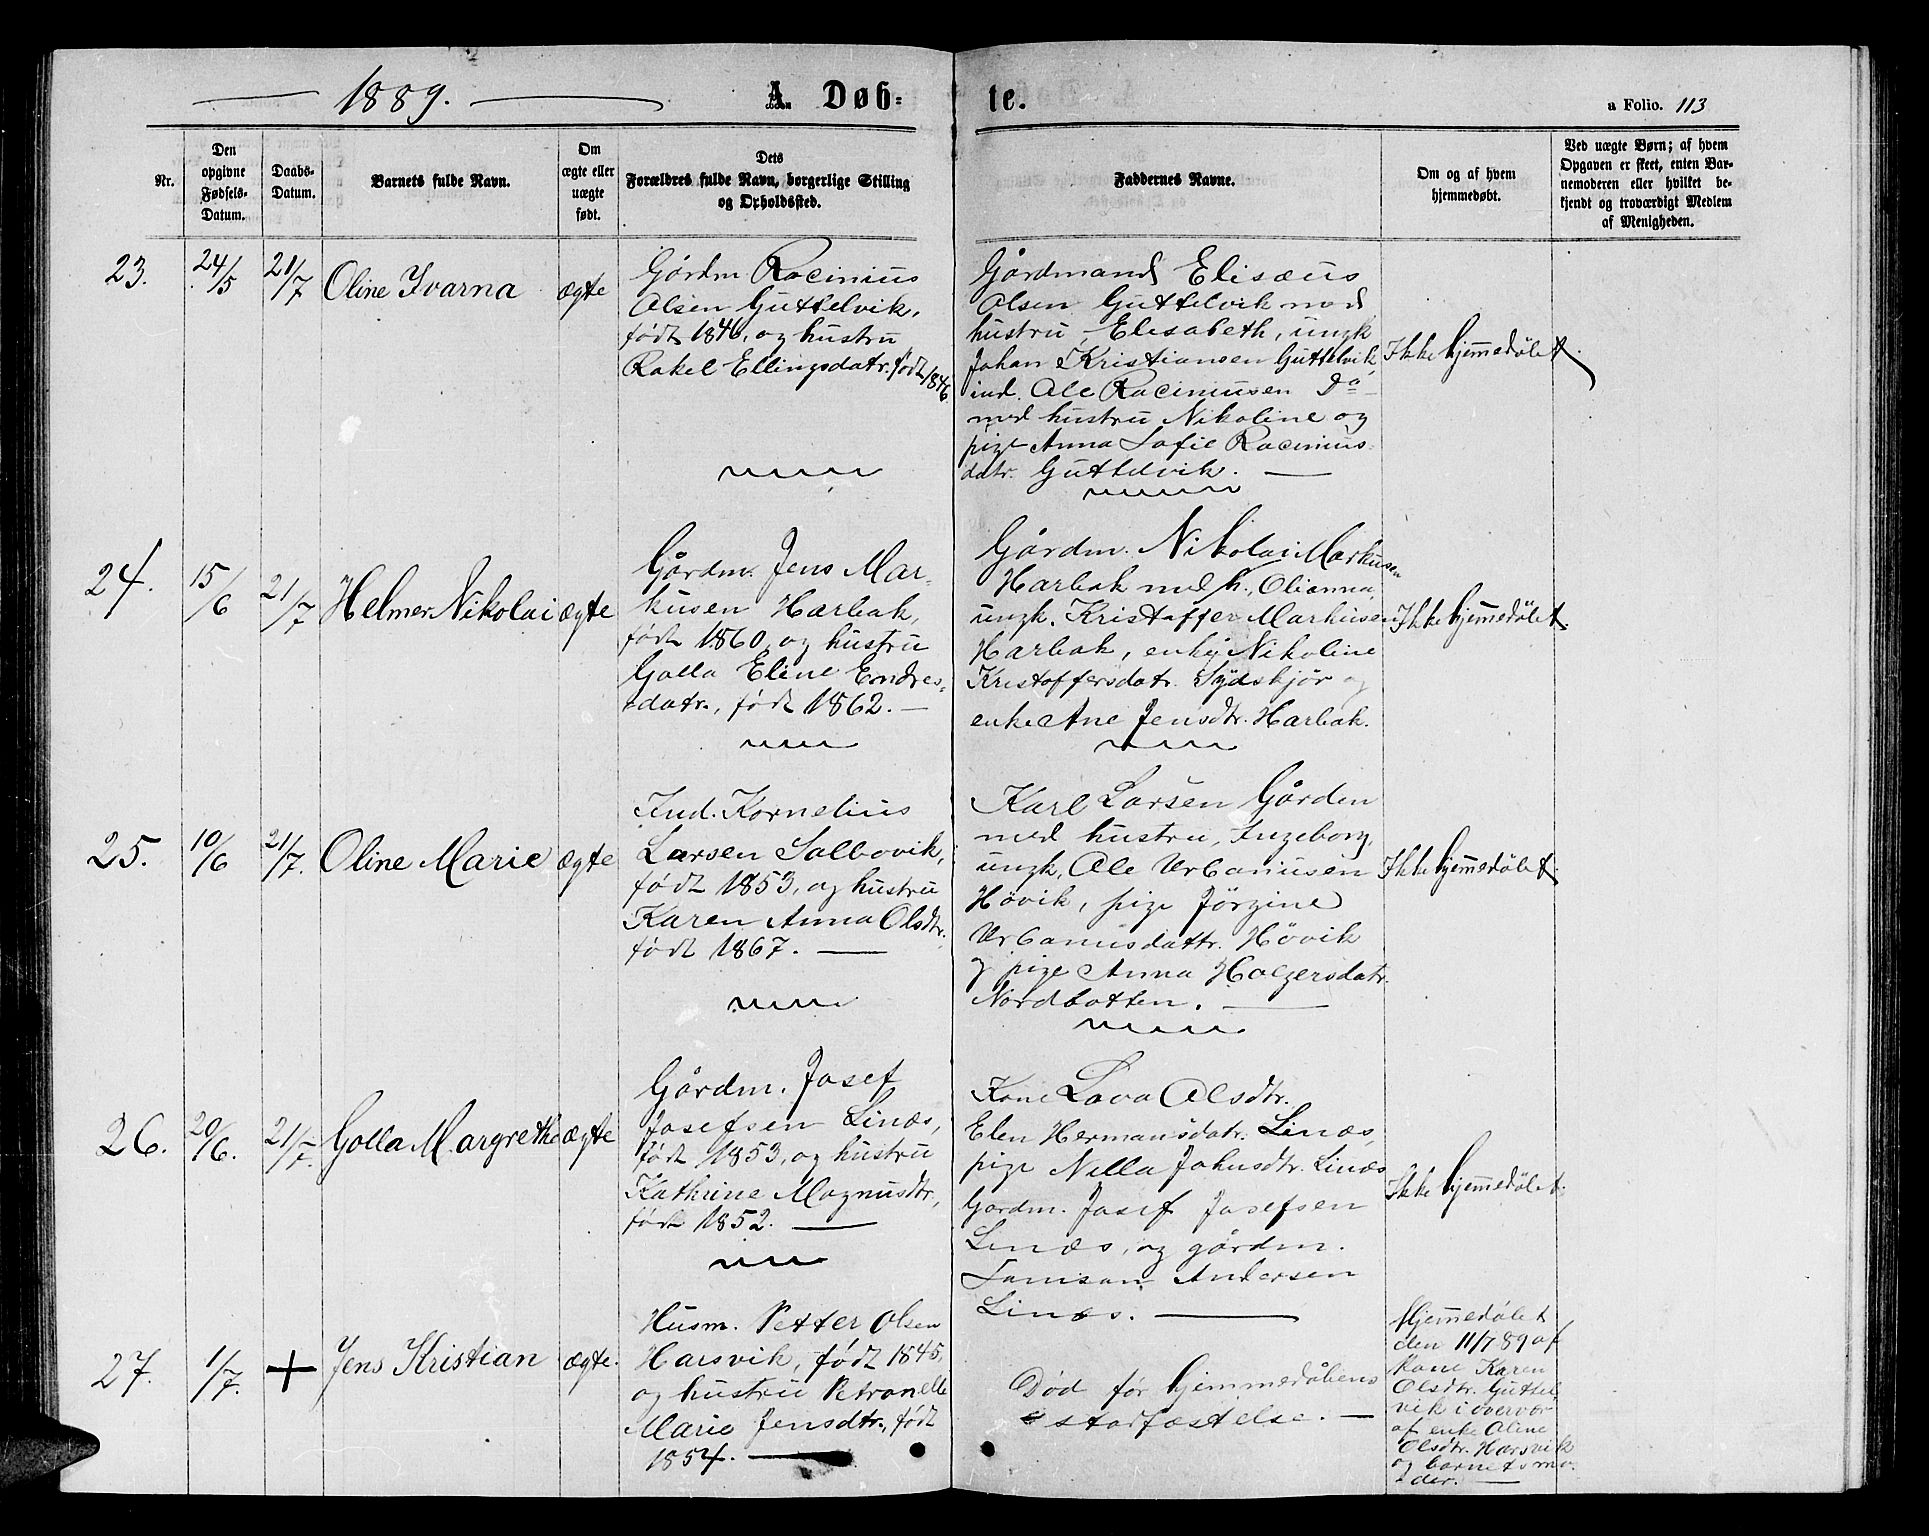 1889. A. Døb-te. a Folio. 113
Nr.
Den opgivne Fødsels-Datum.
Daabs-Datum.
Barnets fulde Navn.
Om ægte eller uægte født.
Dets Forældres fulde Navn, borgerlige Stilling og Opholdssted.
Faddernes Navne.
Om og af hvem hjemmedøbt.
Ved uægte Børn; af hvem Opgaven er skeet, enten Barnemoderen eller hvilket bekjendt og troværdigt Medlem af Menigheden.
23. 24/5 21/7 Oline Ivarna ægte
Gårdm Racinius
Olsen Guttelvik,
født 1846, og hustru
Rakel Ellingsdatr. født 1846.
Gårdmand Elisæus
Olsen Guttelvik med
hustru, Elisabeth, ungk
Johan Kristiansen Guttelvik,
ind. Ole Raciniusen Do
med hustru Nikoline og
pige Anna Sofie Racinius-
datr. Guttelvik.
Ikke hjemmedøbt.
24. 15/6 21/7 Helmer Nikolai ægte
Gårdm. Jens Mar-
kusen Harbak,
født 1860, og hustru
Golla Eline Endres-
datr., født 1862.
Gårdm. Nikolai Markusen
Harbak med h., Olianna,
ungk. Kristoffer Markusen
Harbak, enke Nikoline
Kristoffersdatr. Sydskjør og
enke Ane Jensdtr. Harbak.
Ikke hjemmedøbt.
25. 10/6 21/7. Oline Marie ægte
Ind. Kornelius
Larsen Salbovik,
født 1853, og hustru
Karen Anna Olsdtr.
født 1867.
Karl Larsen Gården
med hustru, Ingeborg,
ungk, Ole Urbaniusen
Høvik, pige Jörgine
Urbaniusdattr. Høvik
og pige Anna Holgersdatr.
Nordbotten.
Ikke hjemmedøbt.
26. 20/6. 21/7. Golla Margrethe ægte
Gårdm. Josef
Josefsen Linæs,
født 1853, og hustru
Kathrine Magnusdtr,
født 1852.
Kone Lava Olsdtr.
Elen Hermansdatr. Linæs,
pige Nella Johnsdtr. Linæs
Gårdm. Josef Josefsen
Linæs, og gårdm.
Andersen
Linæs.
Ikke hjemmedøbt.
27. 1/7. + Jens Kristian ægte.
Husm. Petter Olsen
Harsvik, født 1845,
og hustru Petronelle
Marie Jensdtr., født
1854.
Død før hjemmedåbens
stadfæstelse.
Hjemmedøbt
den 11/7 89 af
kone Karen
Olsdtr. Guttel
vik i overvær
af enke Oline
Olsdtr. Harsvik
og barnets mo-
der.